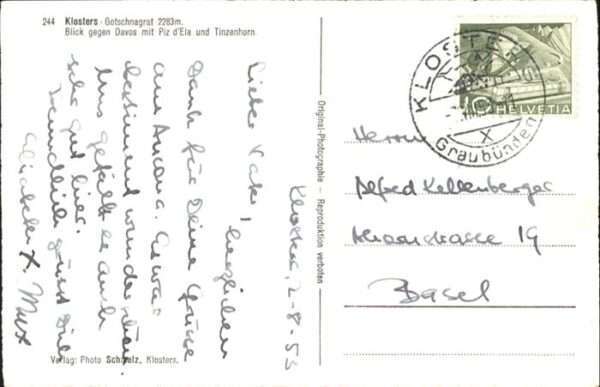 244 Klosters - Gotschnagrat 2283m.
Blick gegen Davos mit Piz d'Ela und Tinzenhorn
Klosters, 2-8-53
Lieber Vater,
herzlichen
Dank für Deine Grüsse
aus Ancona. Es war
bestimmt wunderschön
Uns gefällt es auch
sehr gut hier.
Freundlich grüsst Dich
Max
Verlag: Photo Schmelz, Klosters.
Original-Photographie - Reproduktion verboten
KLOSTERS
Graubünden
X
10 HELVETIA
Herrn
Alfred Kellenberger
19
Basel